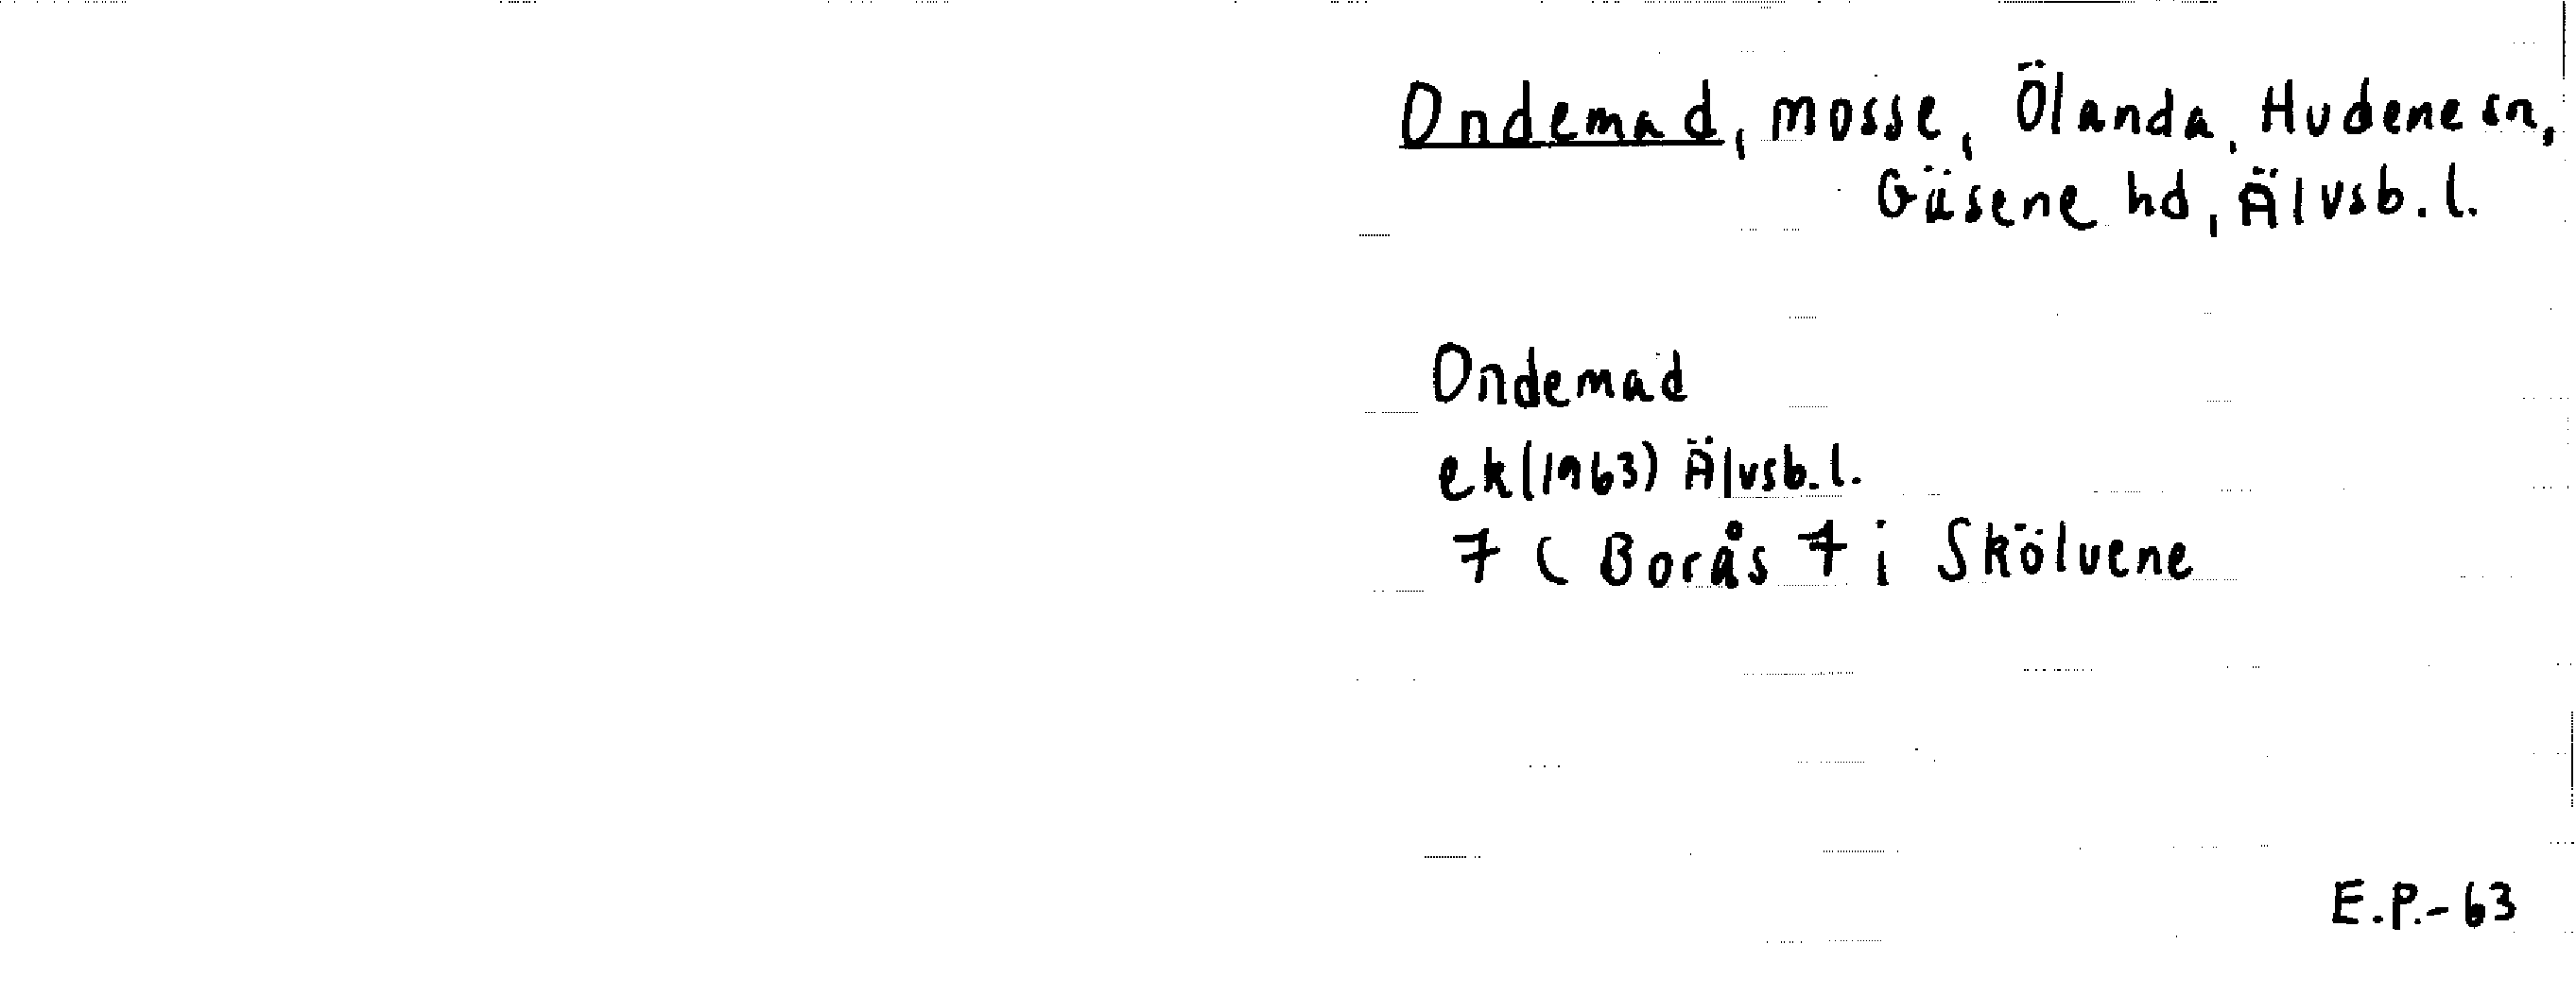 Ondemad, mosse, Ölanda, Hudene sn,
Gäsene hd, Älvsb. l.
Ondemad
ek (1963) Älvsb. l.
7 ( Borås 7 i Skölvene
E.P.-63